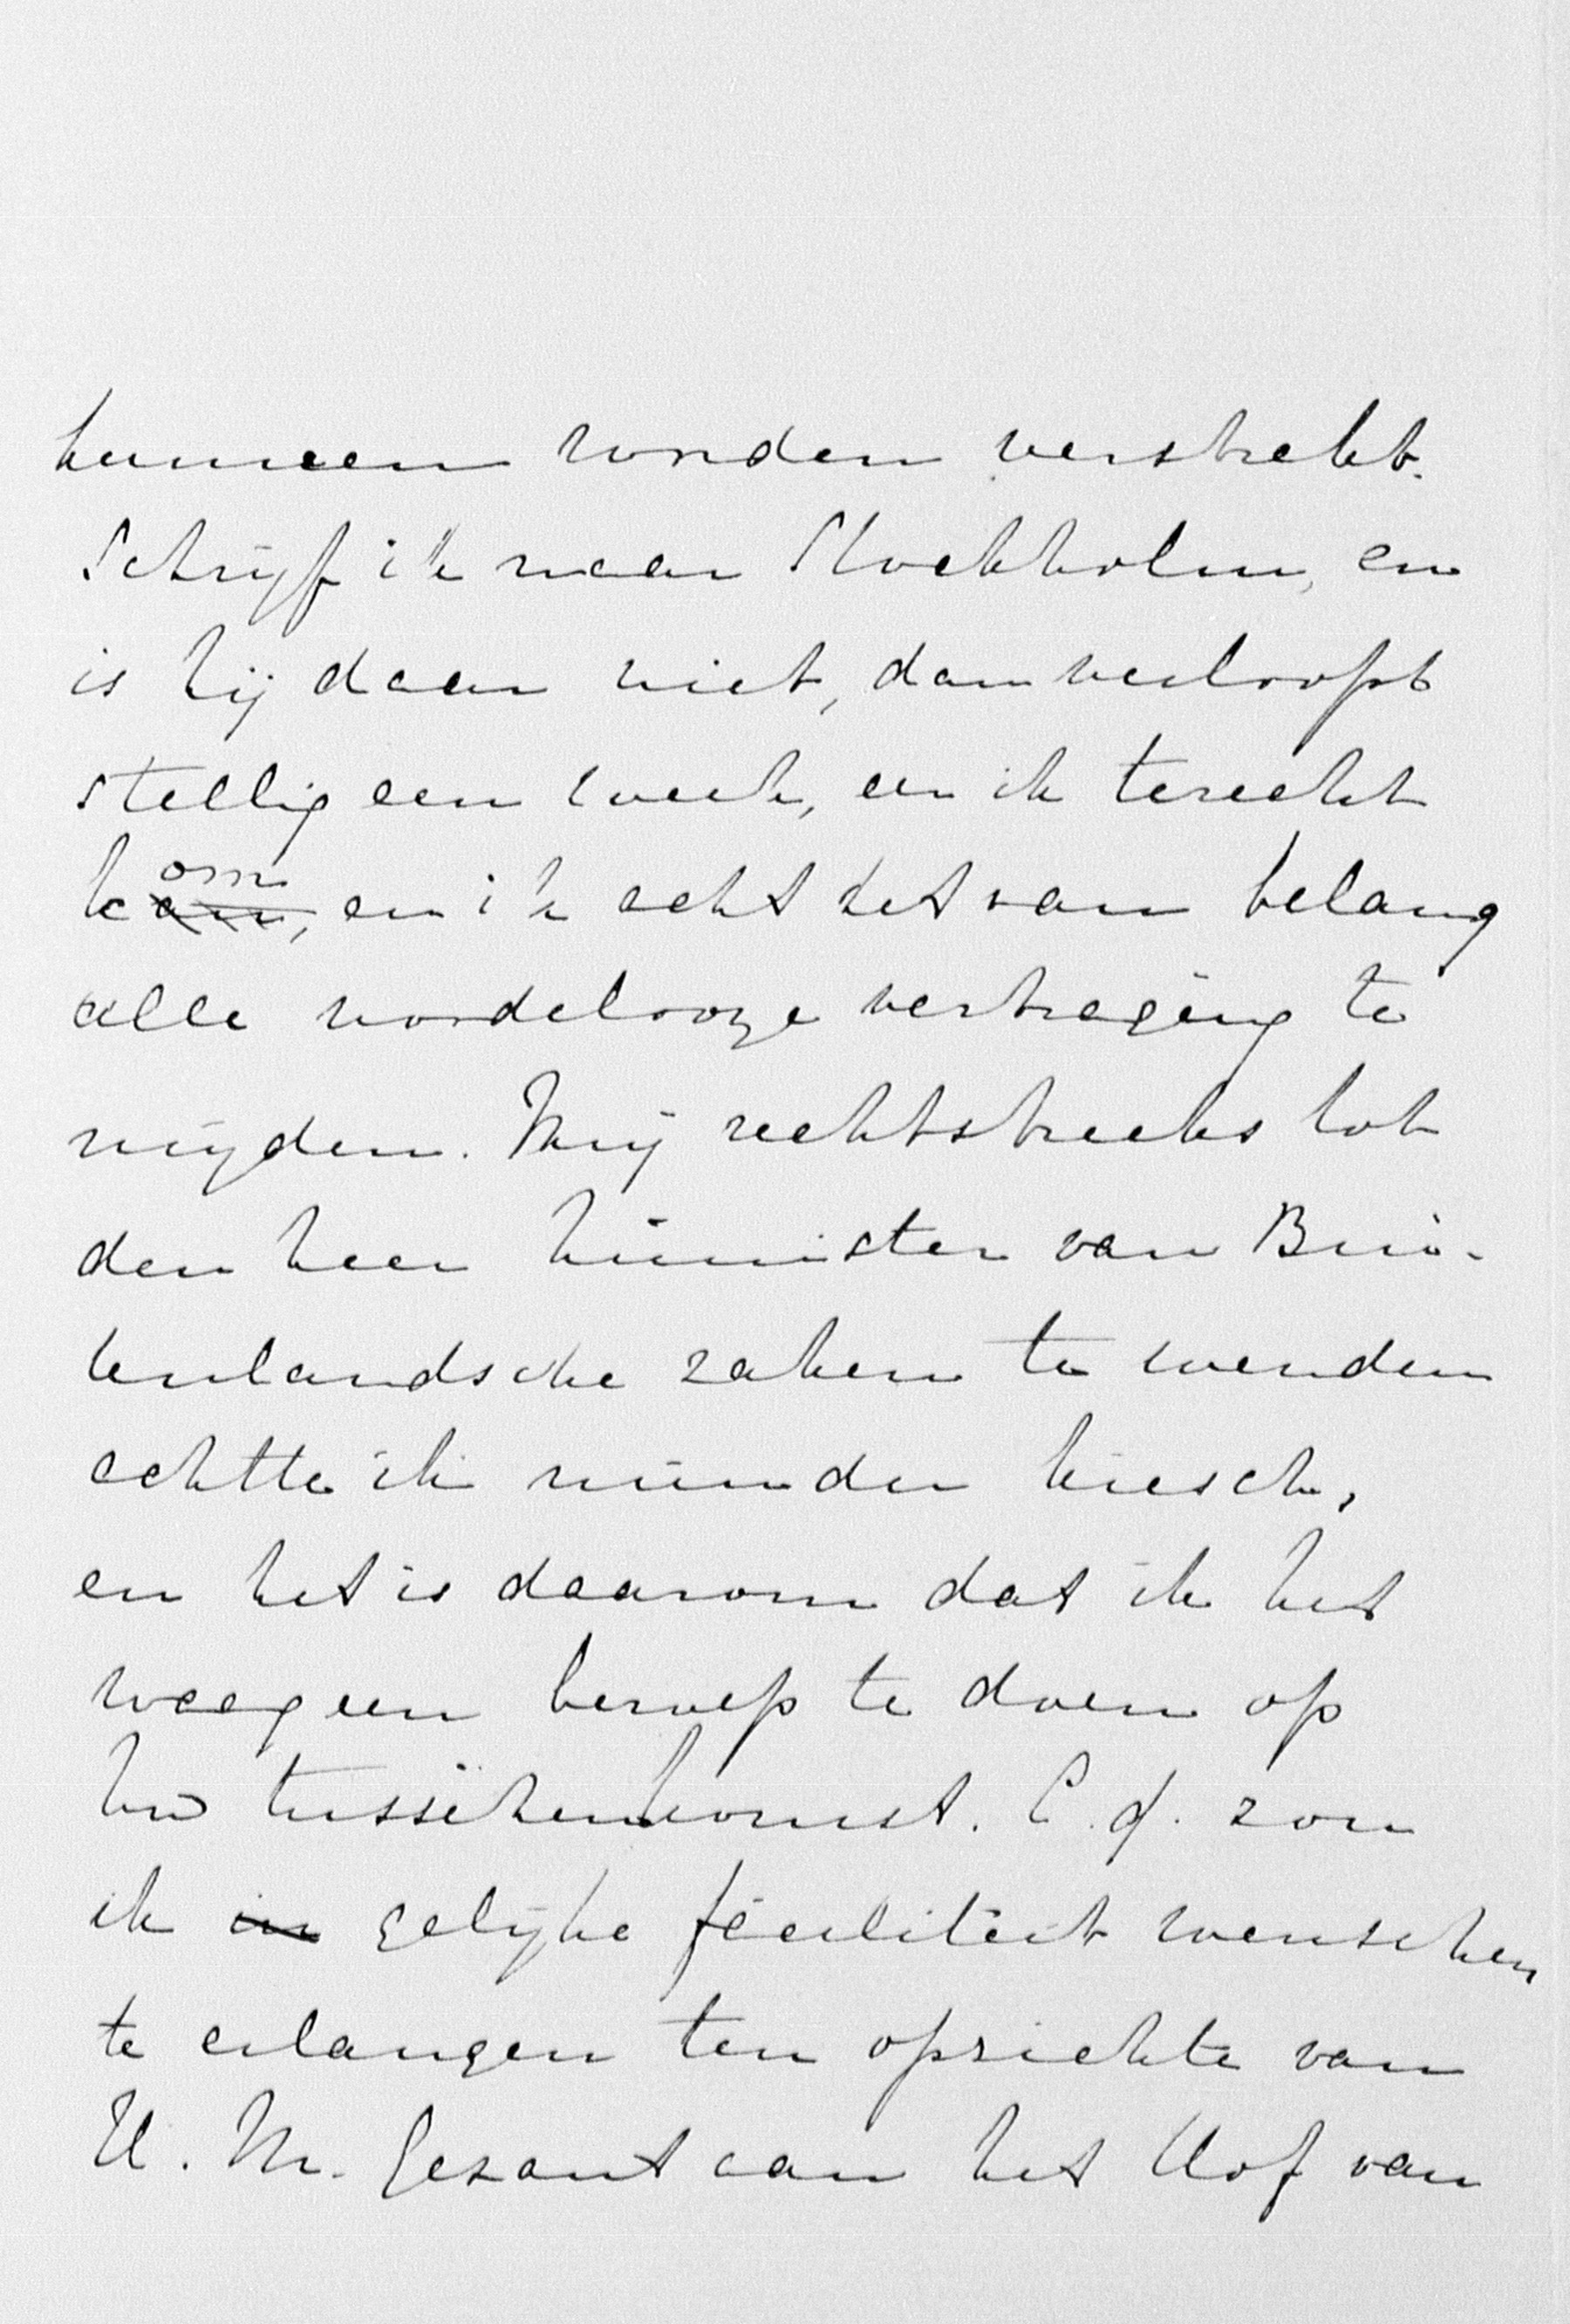 kunnen worden verstrekt.
Schrijf ik naar Stockholm, en
is hij daar niet, dan verloopt
stellig een week, eer ik terecht
kom, en ik acht het van belang
alle noodelooze vertraging te
mijden. Mij rechtstreeks tot
den heer Minister van Bui-
tenlandsche zaken te wenden
achtte ik minder kiesch,
en het is daarom dat ik het
waag een beroep te doen op
Uw tusschenkomst. E.g. zou
ik in gelijke faciliteit wenschen
te erlangen ten opzichte van
H. M. Gezant aan het Hof van